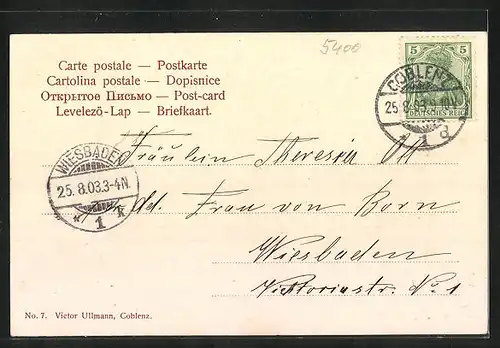 5400
Carte postale — Postkarte
Cartolina postale — Dopisnice
Открытое Письмо — Post-card
Levelező-Lap — Briefkaart.
5 5
DEUTSCHES REICH
COBLENZ
25.8.03.
1 d
WIESBADEN
25.8.03.3-4N.
* 1 k
Fräulein Theresia Ott
Adr. Frau von Born
Wiesbaden
Viktoriastr. No. 1
No. 7. Victor Ullmann, Coblenz.